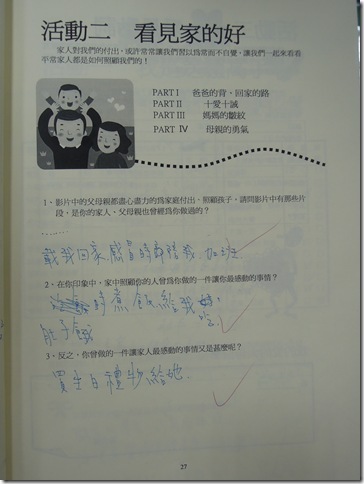 活動二　看見家的好
家人對我們的付出，或許常常讓我們習以為常而不自覺，讓我們一起來看看
平常家人都是如何照顧我們的！
PART I　爸爸的背，回家的路
PART II　十愛十誠
PART III　媽媽的皺紋
PART IV　母親的勇氣
1、影片中的父母親都盡心盡力的為家庭付出、照顧孩子，請問影片中有那些片
段，是你的家人、父母親也曾經為你做過的？
……..
載我回家，感冒時 我，加班
2、在你印象中，家中照顧你的人曾為你做的一件讓你最感動的事情？
的時 煮飯給我 吃
肚子餓
3、反之，你曾做的一件讓家人最感動的事情又是甚麼呢？
買生日禮物給她
27